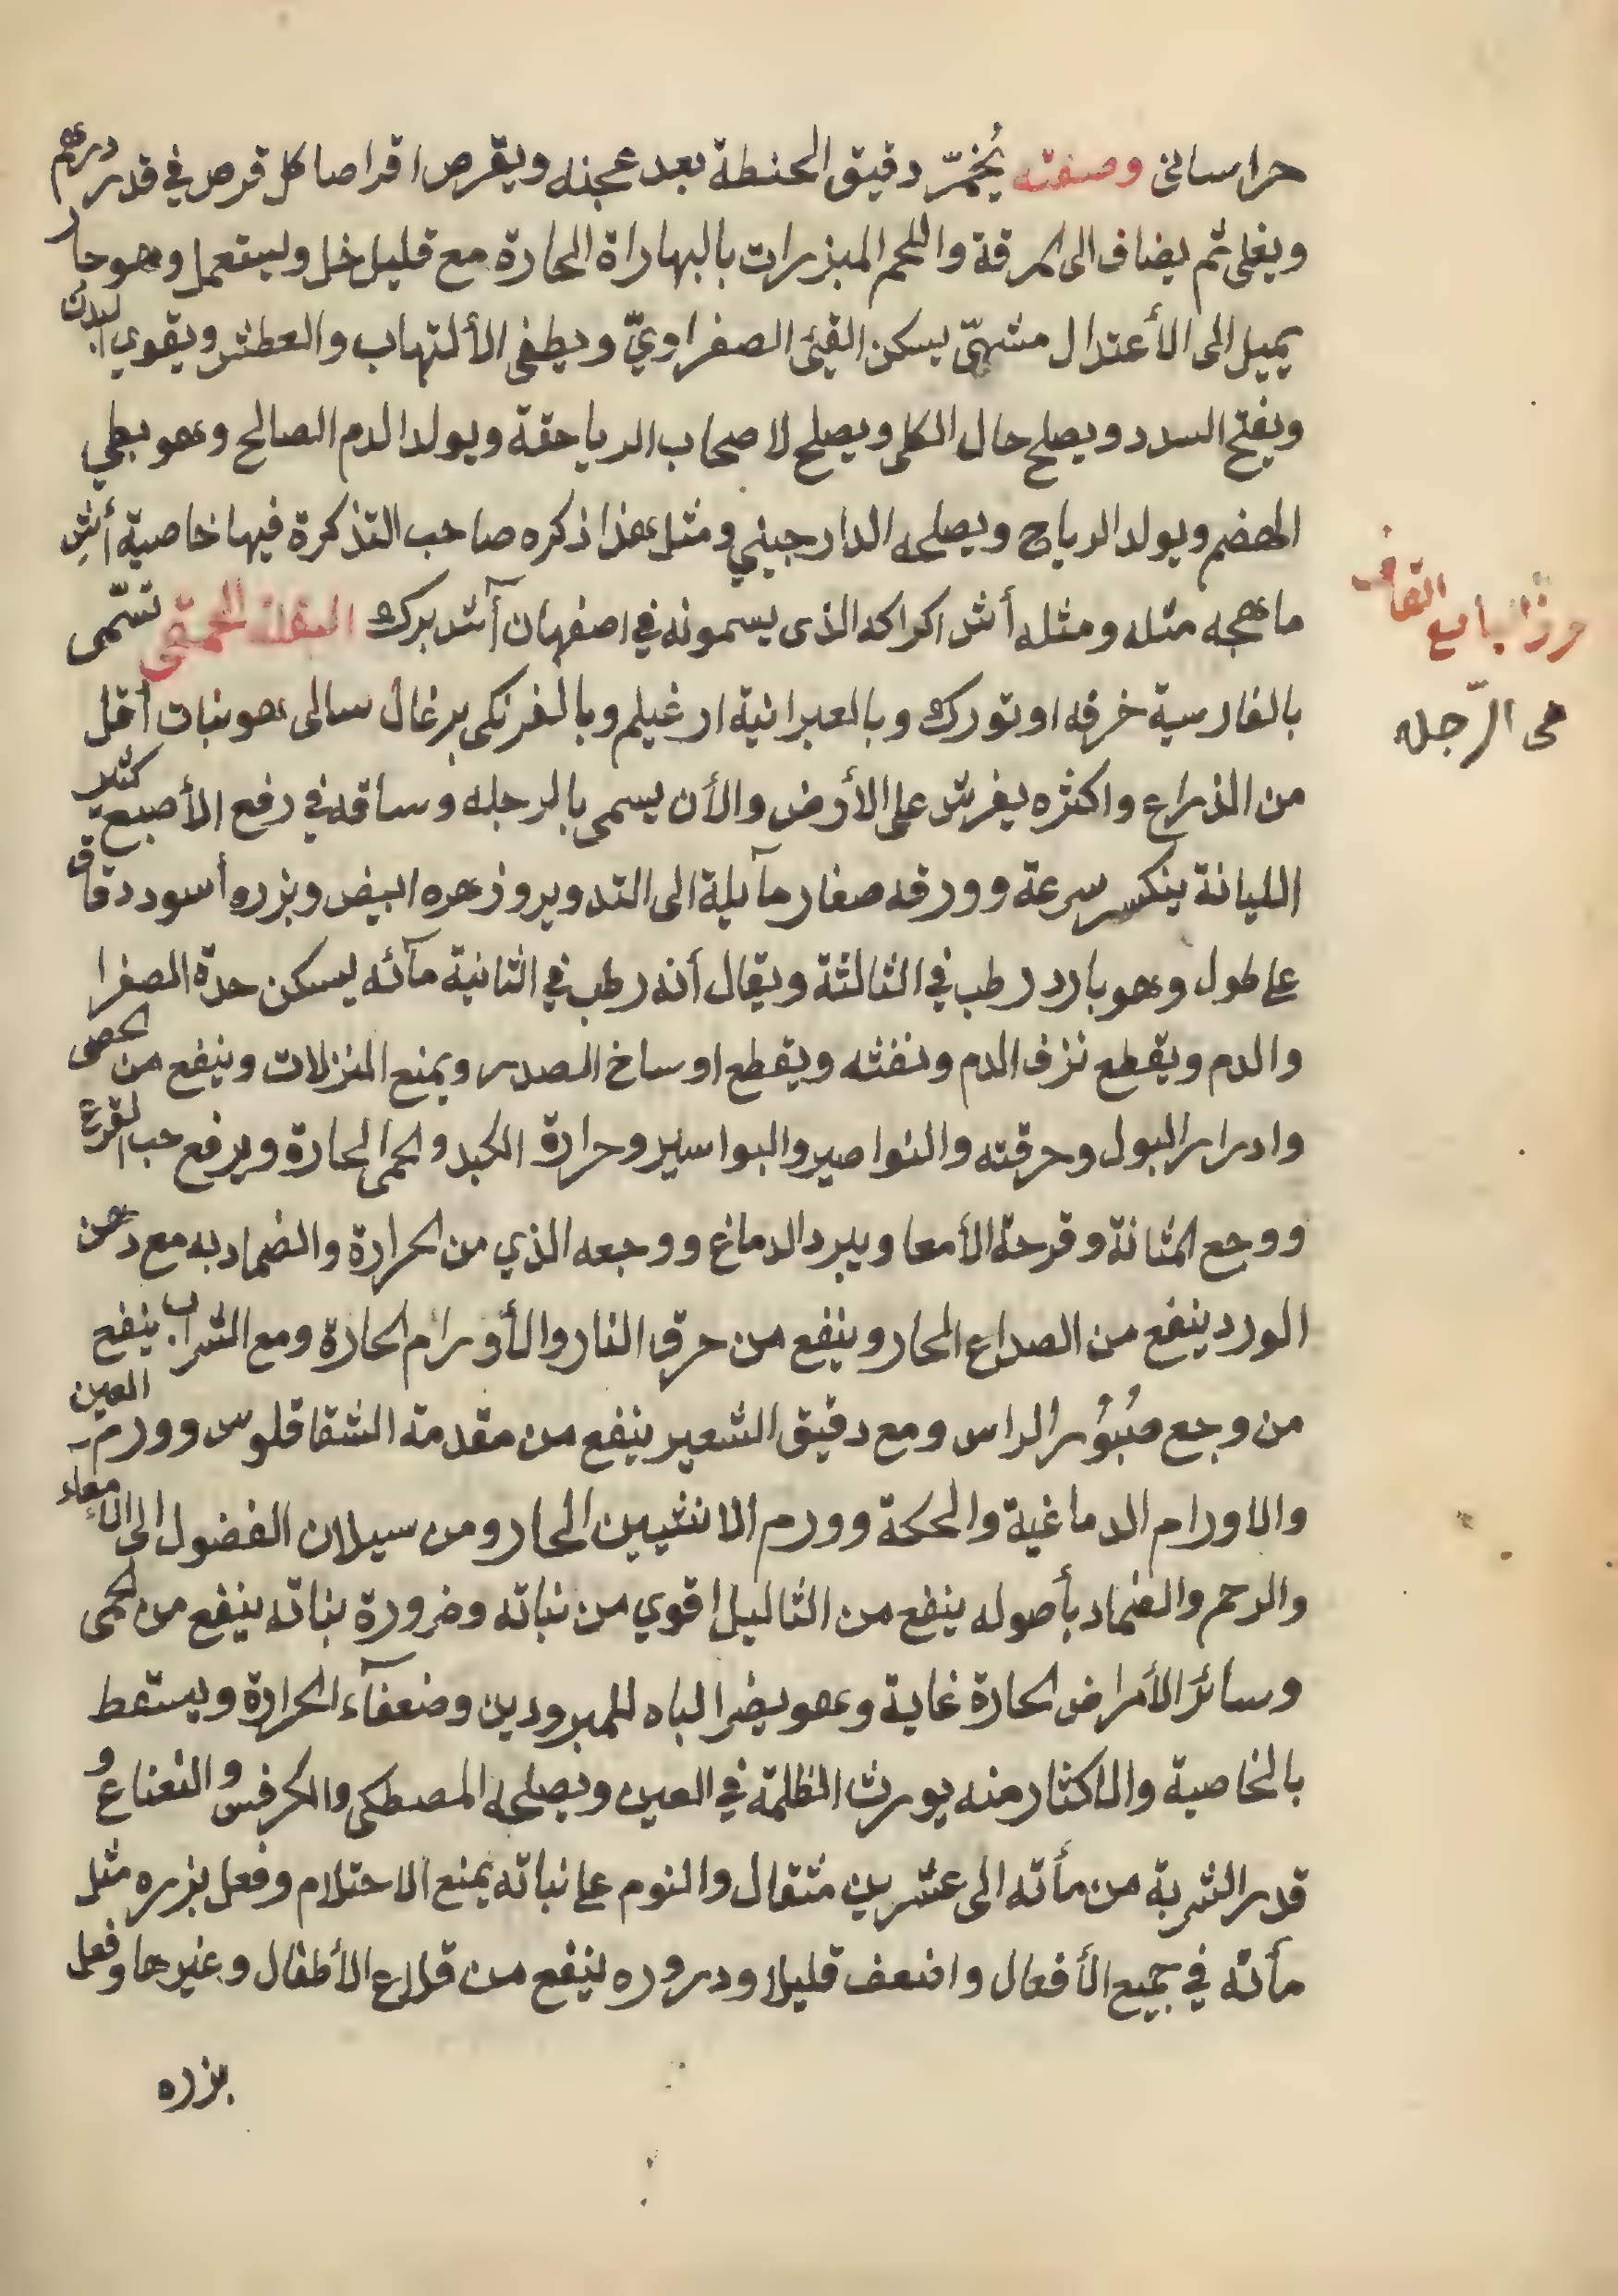 حراسانى وصفته يُخمّر دقيق الحنطة بعد عجنه ويقرص اقراصا كل قرص في قدر درهم
ويغلى ثم يضاف الى المرقة واللحم المبزرات بالبهاراة الحارة مع قليل خل وليستعمل وهو حار
يميل الى الأعتدال مشهّى يسكن القيئ الصفراويّ ويطفى الألتهاب والعطش ويقوي البدن
ويفتح السدد ويصلح حال الكلى ويصلح لاصحاب الرياحقة ويولد الدم الصالح وهو بطي
الهضم ويولد الرياح ويصلحه الدارجيني ومثل هذا ذكره صاحب التذكرة فيها خاصية أش
ماهجه مثله ومثله أش اكراكه الذى يسمونه في اصفهان آش برك البقلة الحمقى تسّمى
بالفارسية خرفه او تورك وبالعبرانية ارغيلم وبالفرنكى برغال سالى هو نبات أقل
من الذراع واكثره يفرش على الأرض والأن يسمى بالرجله وساقه في رفع الأصبع كثير
الليانة ينكسر سرعة وورقه صغار مآيلة الى التدوير وزهره ابيض وبزره أسود دقاق
على طول وهو بارد رطب في الثالثة ويقال أنه رطب في الثانية مآئه يسكن حدّة الصفرا
والدم ويقطع نزف الدم ونفثه ويقطع اوساخ الصدر ويمنع النزلات وينفع من الحصى
وادرار البول وحرقته والنواصير والبواسير وحرارة الكبد والحمى الحارة ويرفع حب القرع
ووجع المثانة وقرحة الأمعا ويبرد الدماغ ووجعه الذي من الحرارة والضماد به مع دهن
الورد ينفع من الصداع الحار وينفع من حرق النار والأورام الحارة ومع الشراب ينفع
من وجع مبُوُر الراس ومع دقيق الشعير ينفع من مقدمة الشقاقلوس وورم العين
والاورام الدماغية والحكة وورم الانثيين الحار ومن سيلان الفضول الى الأمعاء
والرحم والضماد بأصوله ينفع من الثاليل اقوي من نباته وضرورة بناته ينفع من الحمى
وسائر الأمراض الحارة غاية وهو يضر الباه للمبرودين وضعفآء الحرارة ويسقط
بالخاصية والاكثار منه يورث الظلمة في العين ويصلحه المصطكى والكرفس والنعناع و
قدر الشربة من مأئه الى عشرين مثقال والنوم على نباته يمنع الاحتلام وفعل بزره مثل
مأئه في جميع الأفعال واضعف قليلا ودروره ينفع من قلاع الأطفال وغيرها وفعل
بزره
القاف
هى الرّجله